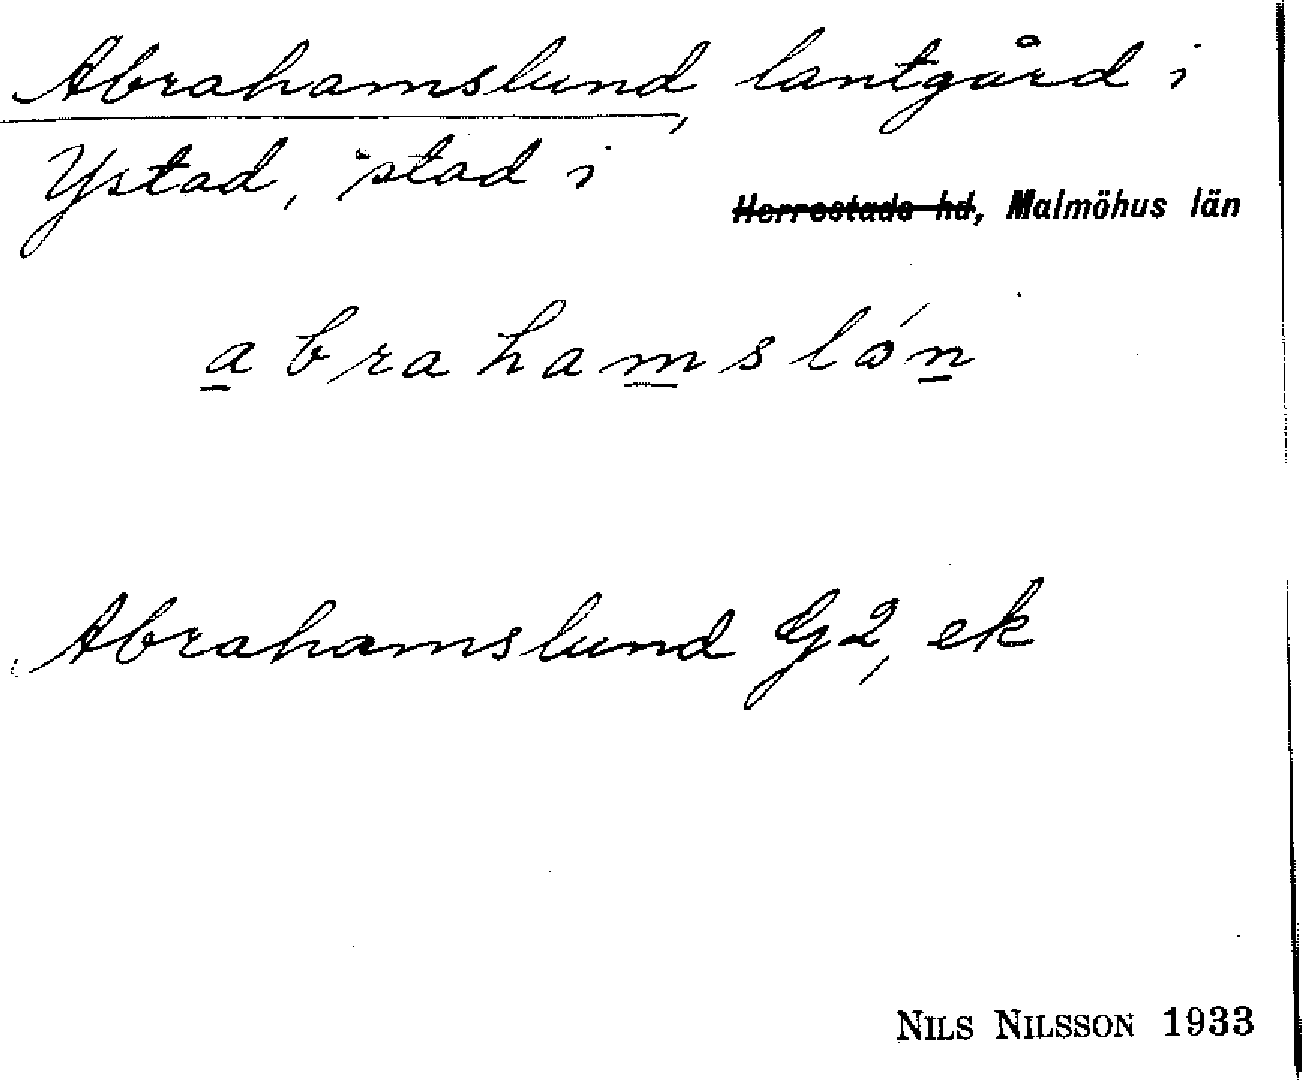 Abrahamslund, lantgård i
Ystad, stad i
Herrestads hd, Malmöhus län
abrahamslón
Abrahamslund G2, ek
NILS NILSSON 1933